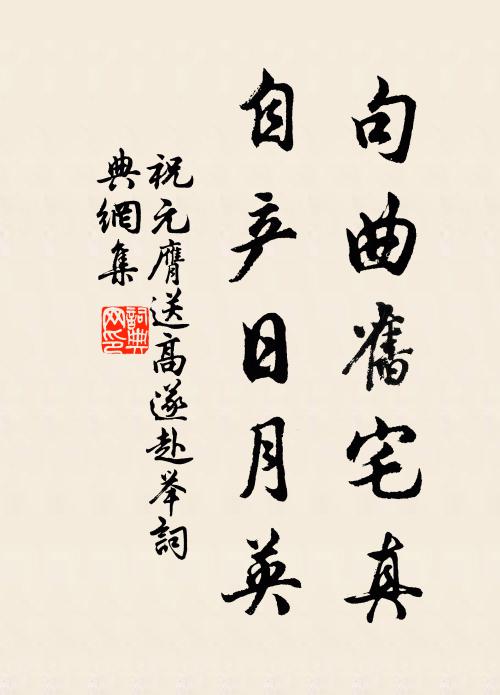 句曲舊宅真
自产日月英
祝元膺送高遂赴举詞
典網集
詞典网印